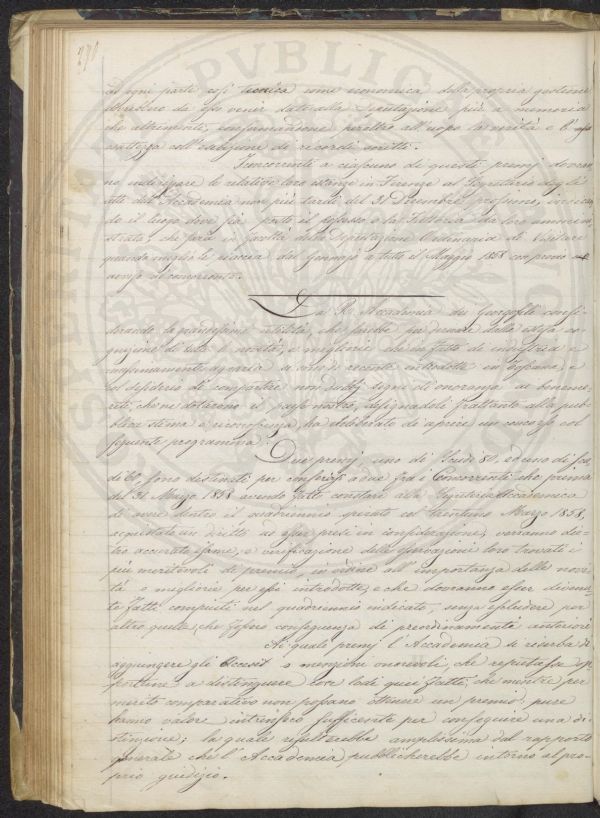 270
ad ogni parte così tecnica come economica della propria gestione
dovessero da essi venir date alla Deputazione più a memoria
che altrimenti, conformandone peraltro all'uopo la verità e l'esat
tezza coll'esibizione di ricordi scritti.
I concorrenti a ciascuno di questi premj dovran
no indirizzare le relative loro istanze in Firenze al Segretario degli
atti dell'Accademia non più tardi del 31 Decembre prossimo, indican
do il luogo dove sia posto il possesso o la Fattoria da loro ammini
strata, che sarà in facoltà della Deputazione Ordinaria di visitare
quando meglio le piaccia dal Gennajo a tutto il Maggio 1858 con preavviso
al concorrente.
La R. Accademia dei Georgofili consi
derando la grandissima utilità, che sarebbe per derivare dalla estesa co
gnizione di tutte le novità, e migliorie che in fatto di industria e
massimamente agraria si sono di recente introdotte in Toscana, e
nel desiderio di compartire non dubbj segni di onoranza ai beneme
riti, che ne dotarono il paese nostro, designandoli frattanto alla pub
blica stima e riconoscenza, ha deliberato di aprire un concorso col
seguente programma:
Due premj, uno di Scudi 80, ed uno di Scu
di 60, sono destinati per conferirsi a due fra i Concorrenti che prima
del 31 Marzo 1858 avendo fatto constare alla Segreteria Accademica
di avere dentro il quadriennio spirato col trentuno Marzo 1858,
acquistato un diritto ad esser presi in considerazione, verranno die
tro accurato esame, e verificazione delle
più meritevoli di premio, in ordine all'importanza delle novi
tà o migliorie per essi introdotte, e che dovranno esser divenu
te fatti compiuti nel quadriennio indicato, senza escludere per
altro quelle, che fossero conseguenza di preordinamenti anteriori
Ai quali premj l'Accademia si riserba di
aggiungere gli Accessit o menzioni onorevoli, che reputasse op
portune a distinguere con lode quei fatti, che mentre per
merito comparativo non possano ottenere un premio, pure
hanno valore intrinseco sufficiente per conseguire una di
stinzione; la quale risulterebbe amplissima dal rapporto
generale che l'Accademia pubblicherebbe intorno al pro
prio giudizio.